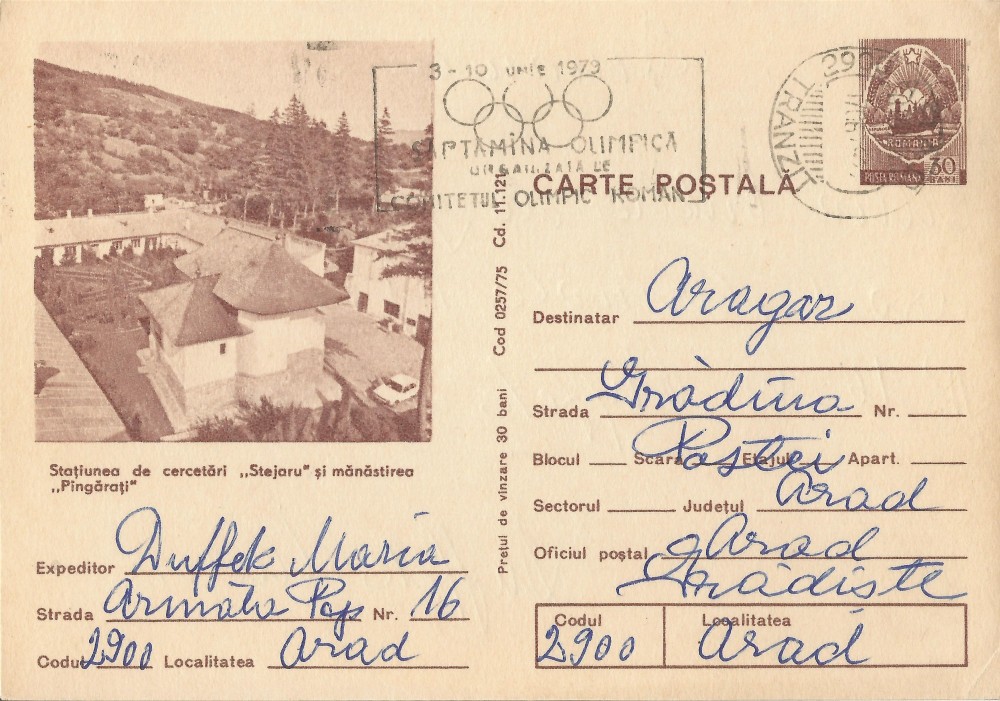 3-10 IUNIE 1979
SĂPTĂMÎNA OLIMPICĂ
ORGANIZATĂ DE
COMITETUL OLIMPIC ROMÂN
290
TRANZIT
ROMANIA
POSTA ROMANA
30
BANI
CARTE POȘTALĂ
Stațiunea de cercetări „Stejaru" și mănăstirea
„Pîngărați"
Prețul de vînzare 30 bani Cod 0257/75 Cd. 11.121
Expeditor Duffek Maria
Strada Armata Pop Nr. 16
Codul 2900 Localitatea Arad
Destinatar Aragaz
Strada Grădina Nr.
Blocul Scara Etajul Apart.
Poștei
Sectorul Județul Arad
Oficiul poștal Arad
Grădiște
Codul Localitatea
2900 Arad